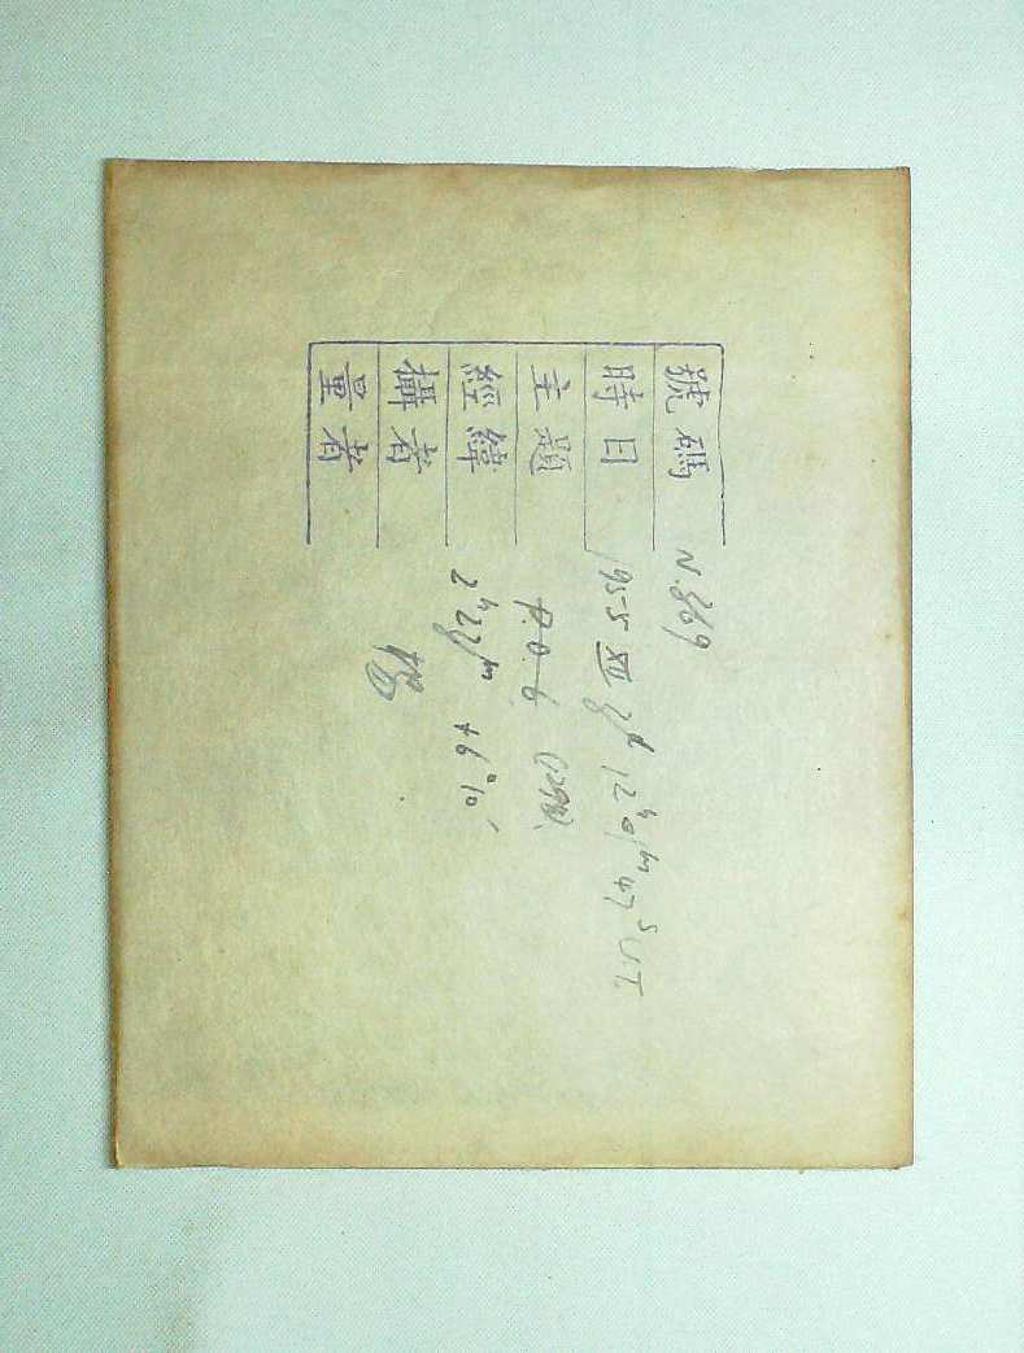 號碼 N.869
時日 1955 XII 8d 12h 01m 47s U.T
主題 P.O. 6
經緯 2h 28m +6°10'
攝者
量者